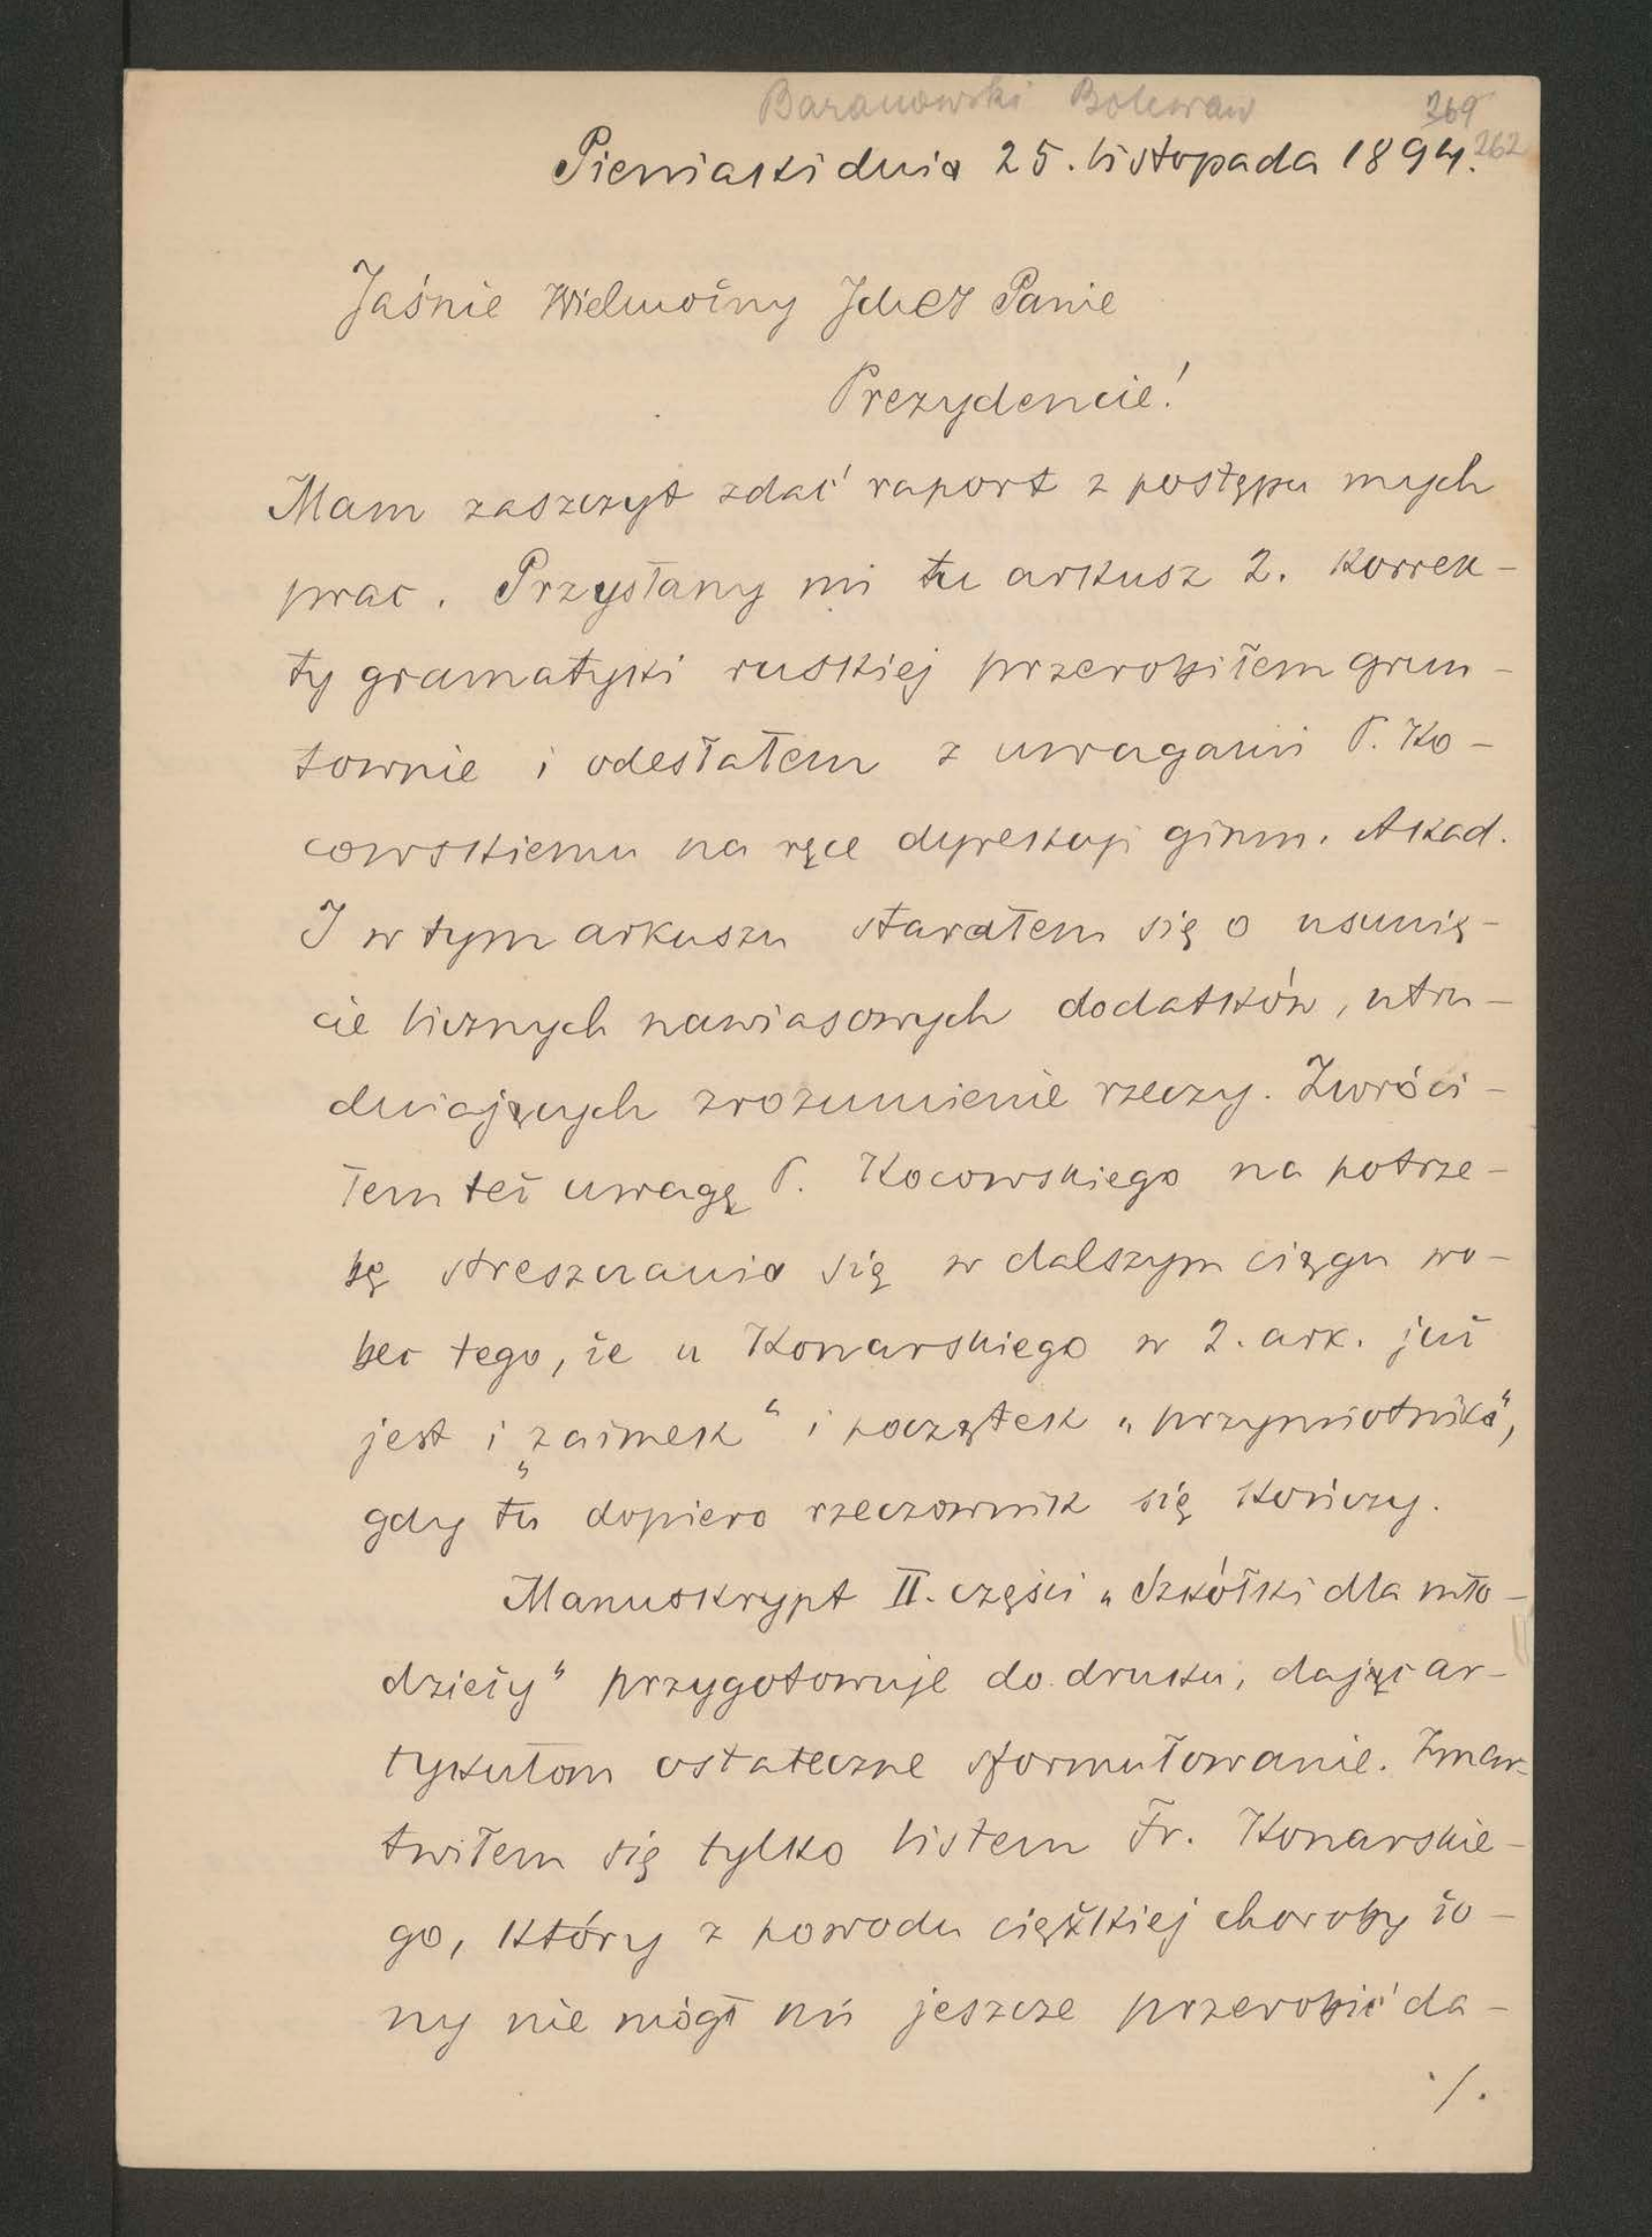 Baranowski Bolesław
269
262
Pieniaki dnia 25. listopada 1894.
Jaśnie Wielmożny Panie
Prezydencie!
Mam zaszczyt zdać raport z postępu mych
prac. Przysłany mi tu arkusz 2. korrek-
ty gramatyki ruskiej przerobiłem grun-
townie i odesłałem z uwagami P. Ko-
cowskiemu na ręce dyrekcyi gimn. Akad.
I w tym arkuszu starałem się o usunię-
cie licznych nawiasowych dodatków, utru-
dniających zrozumienie rzeczy. Zwróci-
łem też uwagę P. Kocowskiego na potrze-
bę streszczania się w dalszym ciągu wo-
bec tego, że u Konarskiego w 2. ark. już
jest i „zaimek“ i początek „przymiotnika“,
gdy tu dopiero rzeczownik się kończy.
Manuskrypt II. części „Szkółki dla mło-
dzieży“ przygotowuje do druku, dając ar-
tykułom ostateczne sformułowanie. Zmar-
twiłem się tylko listem Fr. Konarskie-
go, który z powodu ciężkiej choroby żo-
ny nie mógł mi jeszcze przerobić da-
./.